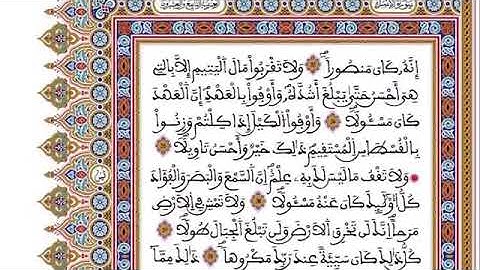 إِنَّهُۥ كَانَ مَنصُورًا وَلَا تَقْرَبُوا۟ مَالَ اَ۬لْيَتِيمِ إِلَّا بِالتِے
هِىَ أَحْسَنُ حَتَّىٰ يَبْلُغَ أَشُدَّهُۥ وَأَوْفُوا۟ بِالْعَهْدِ إِنَّ اَ۬لْعَهْدَ
كَانَ مَسْـُٔولًا وَأَوْفُوا۟ اُ۬لْكَيْلَ إِذَا كِلْتُمْ وَزِنُوا۟
بِالْقُسْطَاسِ اِ۬لْمُسْتَقِيمِ ذَٰلِكَ خَيْرٌ وَأَحْسَنُ تَأْوِيلًا
وَلَا تَقْفُ مَا لَيْسَ لَكَ بِهِۦ عِلْمٌ إِنَّ اَ۬لسَّمْعَ وَالْبَصَرَ وَالْفُؤَادَ
كُلُّ أُو۟لَٰٓئِكَ كَانَ عَنْهُ مَسْـُٔولًا وَلَا تَمْشِ فِے اِ۬لْأَرْضِ
مَرَحًا إِنَّكَ لَن تَخْرِقَ اَ۬لْأَرْضَ وَلَن تَبْلُغَ اَ۬لْجِبَالَ طُولًا
كُلُّ ذَٰلِكَ كَانَ سَيِّئَةً عِندَ رَبِّكَ مَكْرُوهًا ذَٰلِكَ مِمَّا